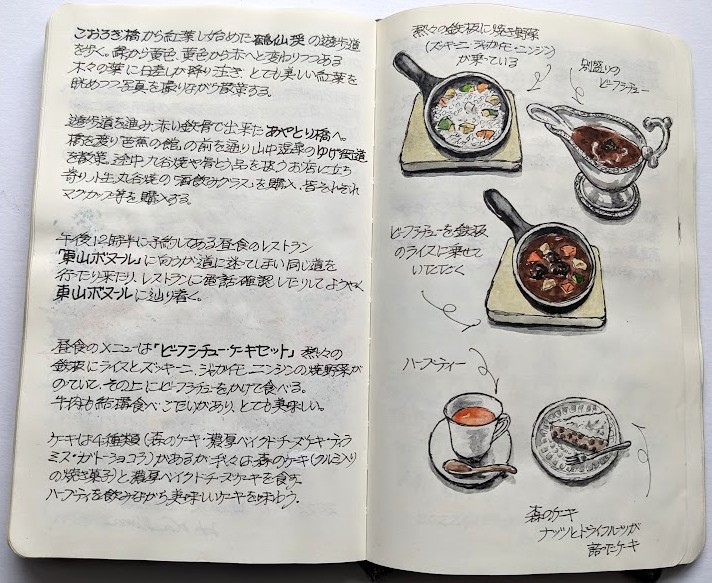 こおろぎ橋から紅葉し始めた鶴仙渓の遊歩道
を歩く。緑から黄色、黄色から赤へと変わりつつある
木々の葉に日差しが降り注ぎ、とても美しい紅葉を
眺めつつ写真を撮りながら散策する。
遊歩道を進み、赤い鉄骨で出来たあやとり橋へ。
橋を渡り芭蕉の館の前を通り山中温泉のゆげ街道
を散策。途中九谷焼や骨とう品を扱うお店に立ち
寄り、小生丸谷焼の「酒飲みグラス」を購入、皆それぞれ
マグカップ等を購入する。
午後12時半に予約してある昼食のレストラン
「東山ボヌール」に向うが道に迷ってしまい同じ道を
行ったり来たり、レストランに電話確認したりしてようやく
東山ボヌールに辿り着く。
昼食のメニューは「ビーフシチュー・ケーキセット」熱々の
鉄板にライスとズッキーニ、ジャガイモ、ニンジンの焼野菜が
のていて、その上にビーフシチューをかけて食べる。
牛肉も結構食べごたいがあり、とても美味しい。
ケーキは4種類(森のケーキ・濃厚ベイクドチーズケーキ・ティラ
ミス・ガトーショコラ)があるが我々は森のケーキ(クルミ入り
の焼き菓子)と濃厚ベイクドチーズケーキを食す。
ハーブティを飲みながら、美味しいケーキを味わう。
熱々の鉄板に焼き野菜
(ズッキーニ・ジャガイモ・ニンジン)
が乗っている
別盛りの
ビーフシチュー
ビーフシチューを鉄板
のライスに乗せて
いただく
ハーブ・ティー
森のケーキ
ナッツとドライフルーツが
詰ったケーキ